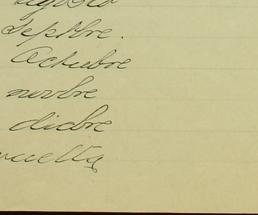 agosto
Septbre.
Octubre
novbre
dicbre
vuelta